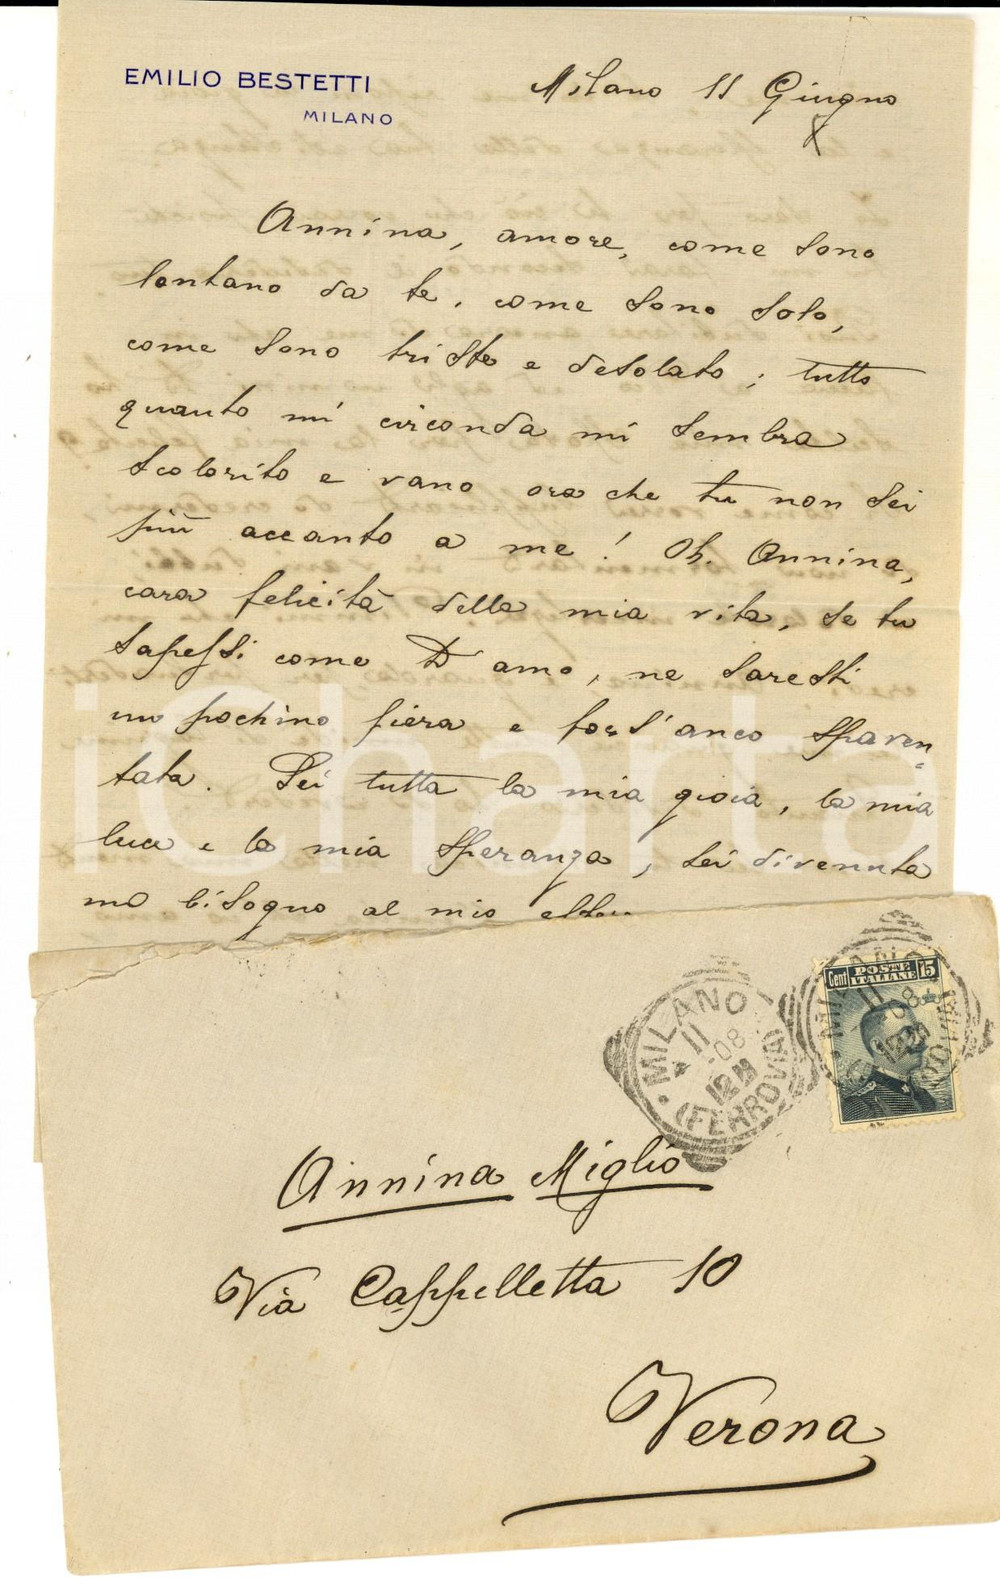 EMILIO BESTETTI
MILANO
Milano 11 Giugno
Annina, amore, come sono
lontano da te, come sono solo,
come sono triste e desolato; tutto
quanto mi circonda mi sembra
scolorito e vano ora che tu non sei
più accanto a me! Oh. Annina,
cara felicità della mia vita, se tu
sapessi come T'amo, ne saresti
un pochino fiera e fors'anco spaven=
tata. Sei tutta la mia gioia, la mia
luce e la mia speranza, sei divenuta
un bisogno al mio
iCharta
Cent POSTE ITALIANE 15
MILANO
11
08
12
(FERROVIA)
MILANO
11
08
Annina Miglió
Via Cappelletta 10
Verona